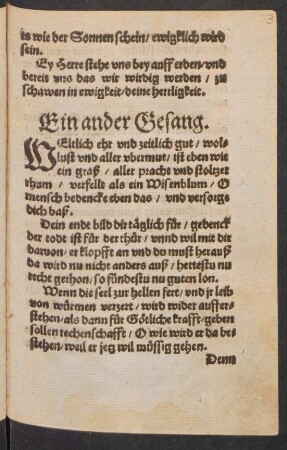 3
es wie der Sonnen schein / ewigklich wird
sein.
Ey Herre stehe vns bey auff erden / vnd
bereit vns das wir wirdig werden / zu
schawen in ewigkeit / deine herrligkeit.
Ein ander Gesang.
WEltlich ehr vnd zeitlich gut / wol-
lust vnd aller vbermut / ist eben wie
ein graß / aller pracht vnd stoltzer
rhum / verfellt als ein Wisenblum / O
mensch bedencke eben das / vnd versorge
dich baß.
Dein ende bild dir täglich für / gedenck
der tode ist für der thür / vnnd wil mit dir
daruon / er klopfft an vnd du must herauß
da wird nu nicht anders auß / hettestu nu
recht gethon / so fündestu nu guten lon.
Wenn die seel zur hellen fert / vnd jr leib
von würmen verzert / wird wider auffer-
stehen / als dann für Götliche krafft / geben
sollen rechenschafft / O wie wird er da be-
stehen / weil er jetz wil müssig gehen.
Denn